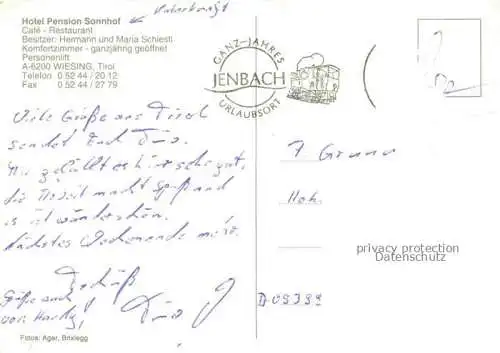 Hotel Pension Sonnhof
Unterkunft
Café - Restaurant
Besitzer: Hermann und Maria Schiestl
Komfortzimmer - ganzjährig geöffnet
Personenlift
A-6200 WIESING, Tirol
Telefon 0 52 44 / 20 12
Fax 0 52 44 / 27 79
GANZ-JAHRES
JENBACH
URLAUBSORT
Viele Grüße aus Tirol
sendet Euch
Mir gefällt es hier sehr gut,
die Freizeit macht Spaß und
es ist wunderschön.
Nächstes Wochenende mehr.
Tschüß
Grüße auch
von Hardy!
privacy protection
Datenschutz
D 09399
Fotos: Ager, Brixlegg